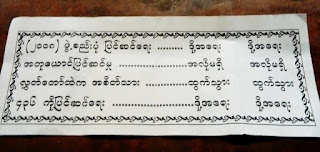 (၂၀၀၈) ဖွဲ့စည်းပုံ ပြင်ဆင်ရေး .......... ဒို့အရေး ဒို့အရေး
အကုယောင်ပြင်ဆင်မှု ................... အလိုမရှိ အလိုမရှိ
လွှတ်တော်ထဲက အစိတ်သား ........... ထွက်သွား ထွက်သွား
၄၃၆ ကိုပြင်ဆင်ရေး ...................... ဒို့အရေး ဒို့အရေး